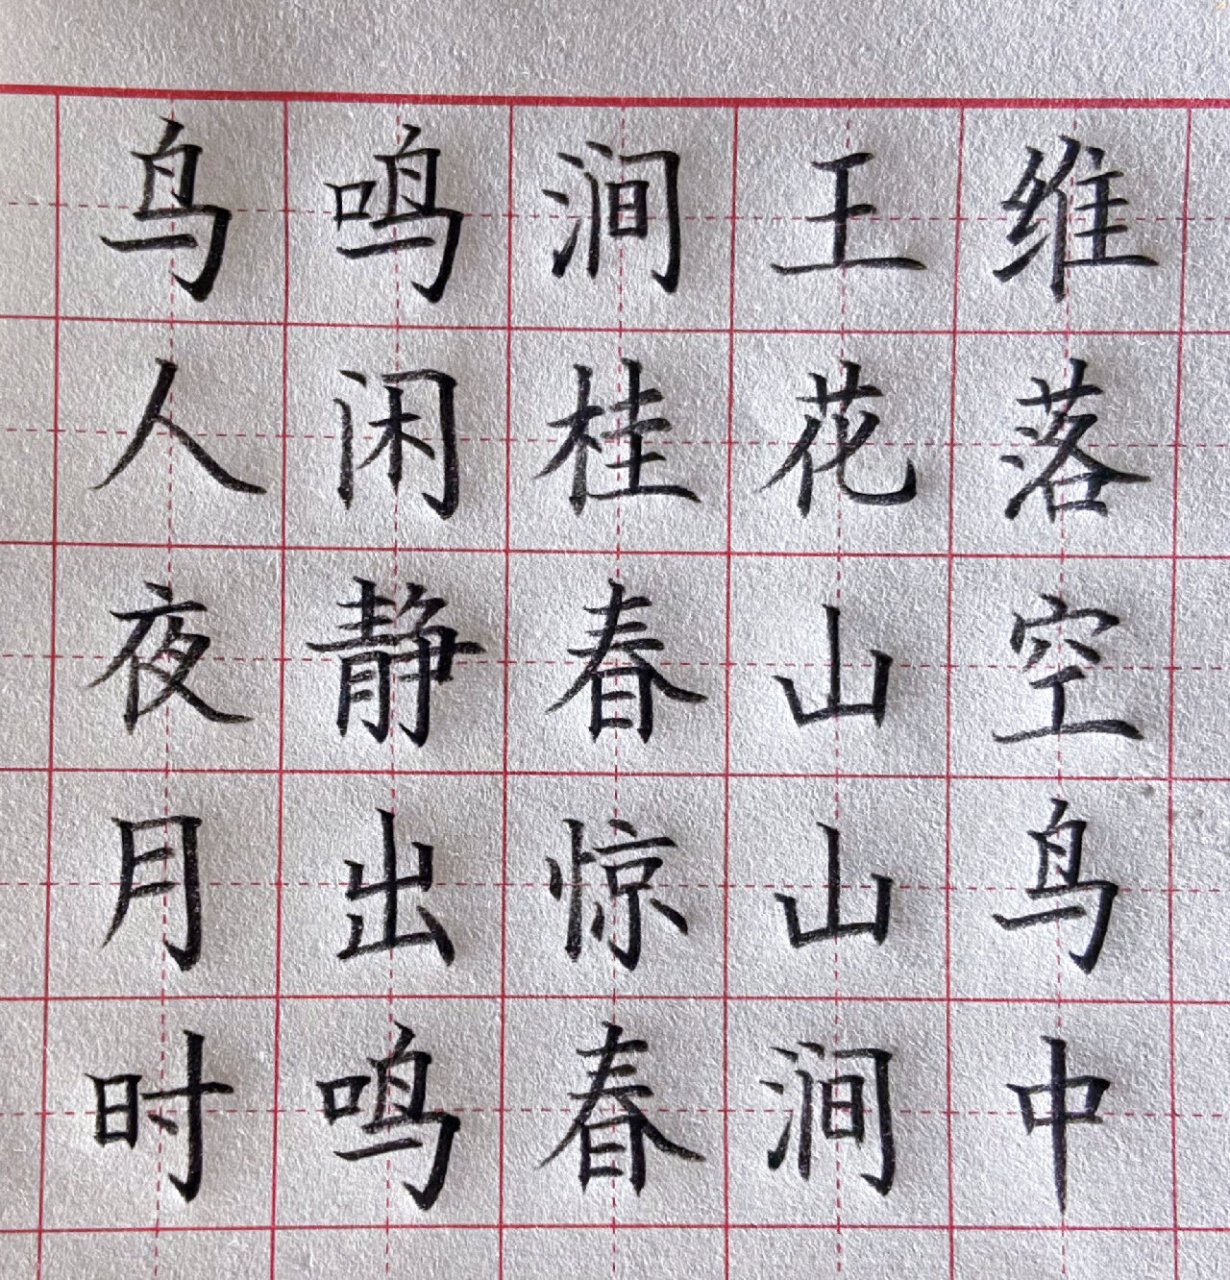 鸟鸣涧王维
人闲桂花落
夜静春山空
月出惊山鸟
时鸣春涧中